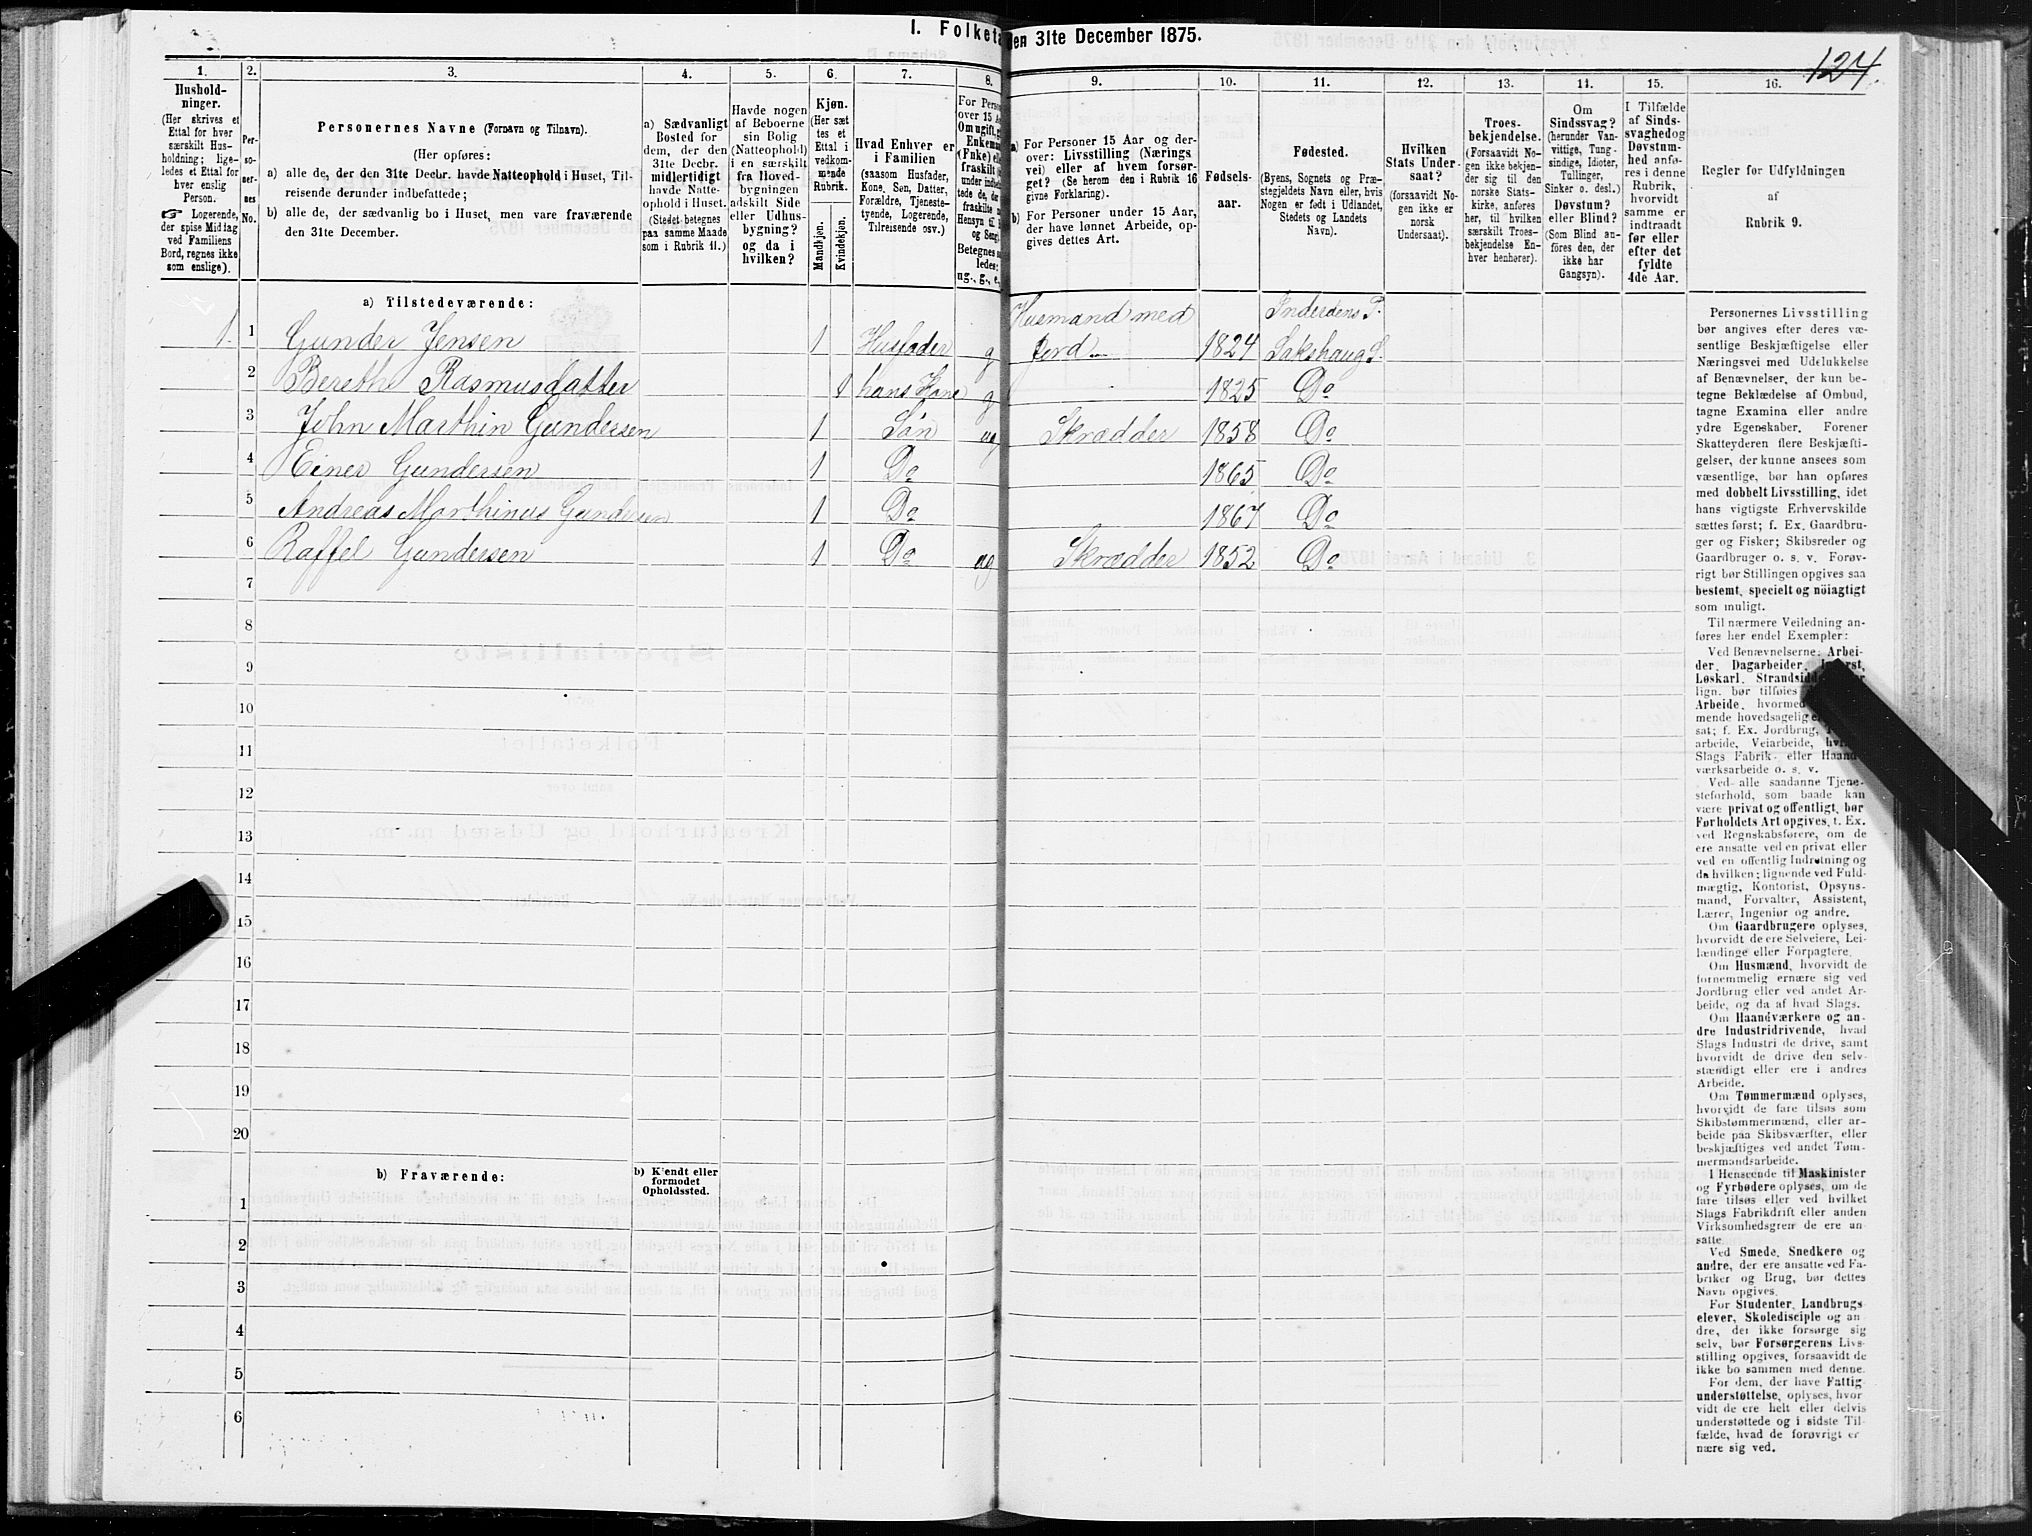 I. Folketa
den 31te December 1875.
124.
1.
Hushold-
ninger.
(Her skrives et
Ettal for hver
særskilt Hus-
holdning; lige-
ledes et Ettal for
hver enslig
Person.
Logerende,
der spise Middag
ved Familiens
Bord, regnes ikke
som enslige).
2.
Per-
so-
ner-
nes
No.
3.
Personernes Navne (Fornavn og Tilnavn).
(Her opføres:
a) alle de, der den 31te Decbr. havde Natteophold i Huset, Til-
reisende derunder indbefattede;
b) alle de, der sædvanlig bo i Huset, men vare fraværende
den 31te December.
4.
a) Sædvanligt
Bosted for
dem, der den
31te Decbr.
midlertidigt
havde Natte-
ophold i Huset.
(Stedet betegnes
paa samme Maade
som i Rubrik 11.)
5.
Havde nogen
af Beboerne
sin Bolig
(Natteophold)
i en særskilt
fra Hoved-
bygningen
adskilt Side
eller Udhus-
bygning?
og da i
hvilken?
6.
Kjøn.
(Her sæt
tes et
Ettal i
vedkom-
mende
Rubrik.
Mandkjøn.
Kvindekjøn.
7.
Hvad Enhver er
i Familien
(saasom Husfader,
Kone, Søn, Datter,
Forældre, Tjeneste-
tyende, Logerende,
Tilreisende osv.)
8.
For Perso
over 15 Aa
Om ugift, g
Enkem
(Enke) ell
fraskilt
under indbe
tede de, de
fraskilte
Hensyn til
og Seng)
Betegnes s
ledes:
ug., g., e.
9.
a) For Personer 15 Aar og der-
over: Livsstilling (Nærings
vei) eller af hvem forsør-
get? (Se herom den i Rubrik 16
givne Forklaring).
b) For Personer under 15 Aar,
der have lønnet Arbeide, op-
gives dettes Art.
10.
Fødsels-
aar.
11.
Fødested.
(Byens, Sognets og Præ-
stegjeldets Navn eller, hvis
Nogen er født i Udlandet,
Stedets og Landets
Navn).
12.
Hvilken
Stats Under-
saat?
(forsaavidt No-
gen ikke er
norsk
Undersaat).
13.
Troes-
bekjendelse.
(Forsaavidt No-
gen ikke bekjen-
der sig til den
norske Stats-
kirke, anføres
her, til hvilken
særskilt Troes-
bekjendelse En-
hver henhører).
14.
Om
Sindssvag?
(herunder Van-
vittige, Tung-
sindige, Idioter,
Tullinger,
Sinker o. desl.)
Døvstum?
eller Blind?
(Som Blind an-
føres den, der
ikke har
Gangsyn).
15.
I Tilfælde
af Sinds-
svaghed og
Døvstum-
hed anfø-
res i denne
Rubrik,
hvorvidt
samme er
indtraadt
før eller
efter det
fyldte
4de Aar.
16.
Regler for Udfyldningen
af
Rubrik 9.
a) Tilstedeværende:
Husmand med Inderøens P.
1. 1 Gunder Jensen 1 Husfader g Jord 1824 Sakshaug S.
2 Berethe Rasmusdatter 1 hans Kone g 1825 Do
3 John Marthin Gundersen 1 Søn ug Skrædder 1858 Do
4 Einer Gundersen 1 Do 1865 Do
5 Andreas Marthinus Gundersen 1 Do 1867 Do
6 Raffel Gundersen 1 Do ug Skrædder 1852 Do
7
8
9
10
11
12
13
14
15
16
17
18
19
20
b) Fraværende:
b) Kjendt eller
formodet
Opholdssted.
1
2
3
4
5
6
Personernes Livsstilling
bør angives efter deres væ-
sentlige Beskjæftigelse eller
Næringsvei med Udelukkelse
af Benævnelser, der kun be-
tegne Beklædelse af Ombud,
tagne Examina eller andre
ydre Egenskaber. Forener
Skatteyderen flere Beskjæfti-
gelser, der kunne ansees som
væsentlige, bør han opføres
med dobbelt Livsstilling, idet
hans vigtigste Erhvervskilde
sættes først; f. Ex. Gaardbru-
ger og Fisker; Skibsreder og
Gaardbruger o. s. v. Forøv-
rigt bør Stillingen opgives saa
bestemt, specielt og nöiagtigt
som muligt.
Til nærmere Veiledning an-
føres her endel Exempler:
Ved Benævnelserne: Arbei-
der, Dagarbeider,
Løskarl, Strandsidde
lign. bør tilføies
Arbeide, hvormed
mende hovedsagelig
sat; f. Ex. Jordbrug,
arbeide, Veiarbeide,
Slags Fabrik- eller Haand-
værksarbeide o. s. v.
Ved alle saadanne Tjene-
steforhold, som baade kan
være privat og offentligt, bør
Forholdets Art opgives, f. Ex.
ved Regnskabsførere, om de
ere ansatte ved en privat eller
ved en offentlig Indretning og
da hvilken; lignende ved Fuld-
mægtig, Kontorist, Opsyns-
mand, Forvalter, Assistent,
Lærer, Ingeniør og andre.
Om Gaardbrugere oplyses,
hvorvidt de ere Selveiere, Lei-
lændinge eller Forpagtere.
Om Husmænd, hvorvidt de
fornemmelig ernære sig ved
Jordbrug eller ved andet Ar-
beide, og da af hvad Slags.
Om Haandværkere og an-
dre Industridrivende, hvad
Slags Industri de drive, samt
hvorvidt de drive den selv-
stændigt eller ere i andres
Arbeide.
Om Tømmermænd oplyses,
hvorvidt de fare tilsøs som
Skibstømmermænd, eller ar-
beide paa Skibsværfter, eller
beskjæftiges ved andet Tøm-
mermandsarbeide.
I Henseende til Maskinister
og Fyrbødere oplyses, om de
fare tilsøs eller ved hvilket
Slags Fabrikdrift eller anden
Virksomhedsgren de ere an-
satte.
Ved Smede, Snedkere og
andre, der ere ansatte ved Fa-
briker og Brug, bør dettes
Navn opgives.
For Studenter, Landbrugs
elever, Skoledisciple og an-
dre, der ikke forsørge sig
selv, bør Forsørgerens Livs-
stilling opgives, forsaavidt de
ikke bo sammen med denne.
For dem, der have Fattig
understøttelse, oplyses, hvor
vidt de ere helt eller delvis
understøttede og i sidste Til-
fælde, hvad de forøvrigt er
nære sig ved.